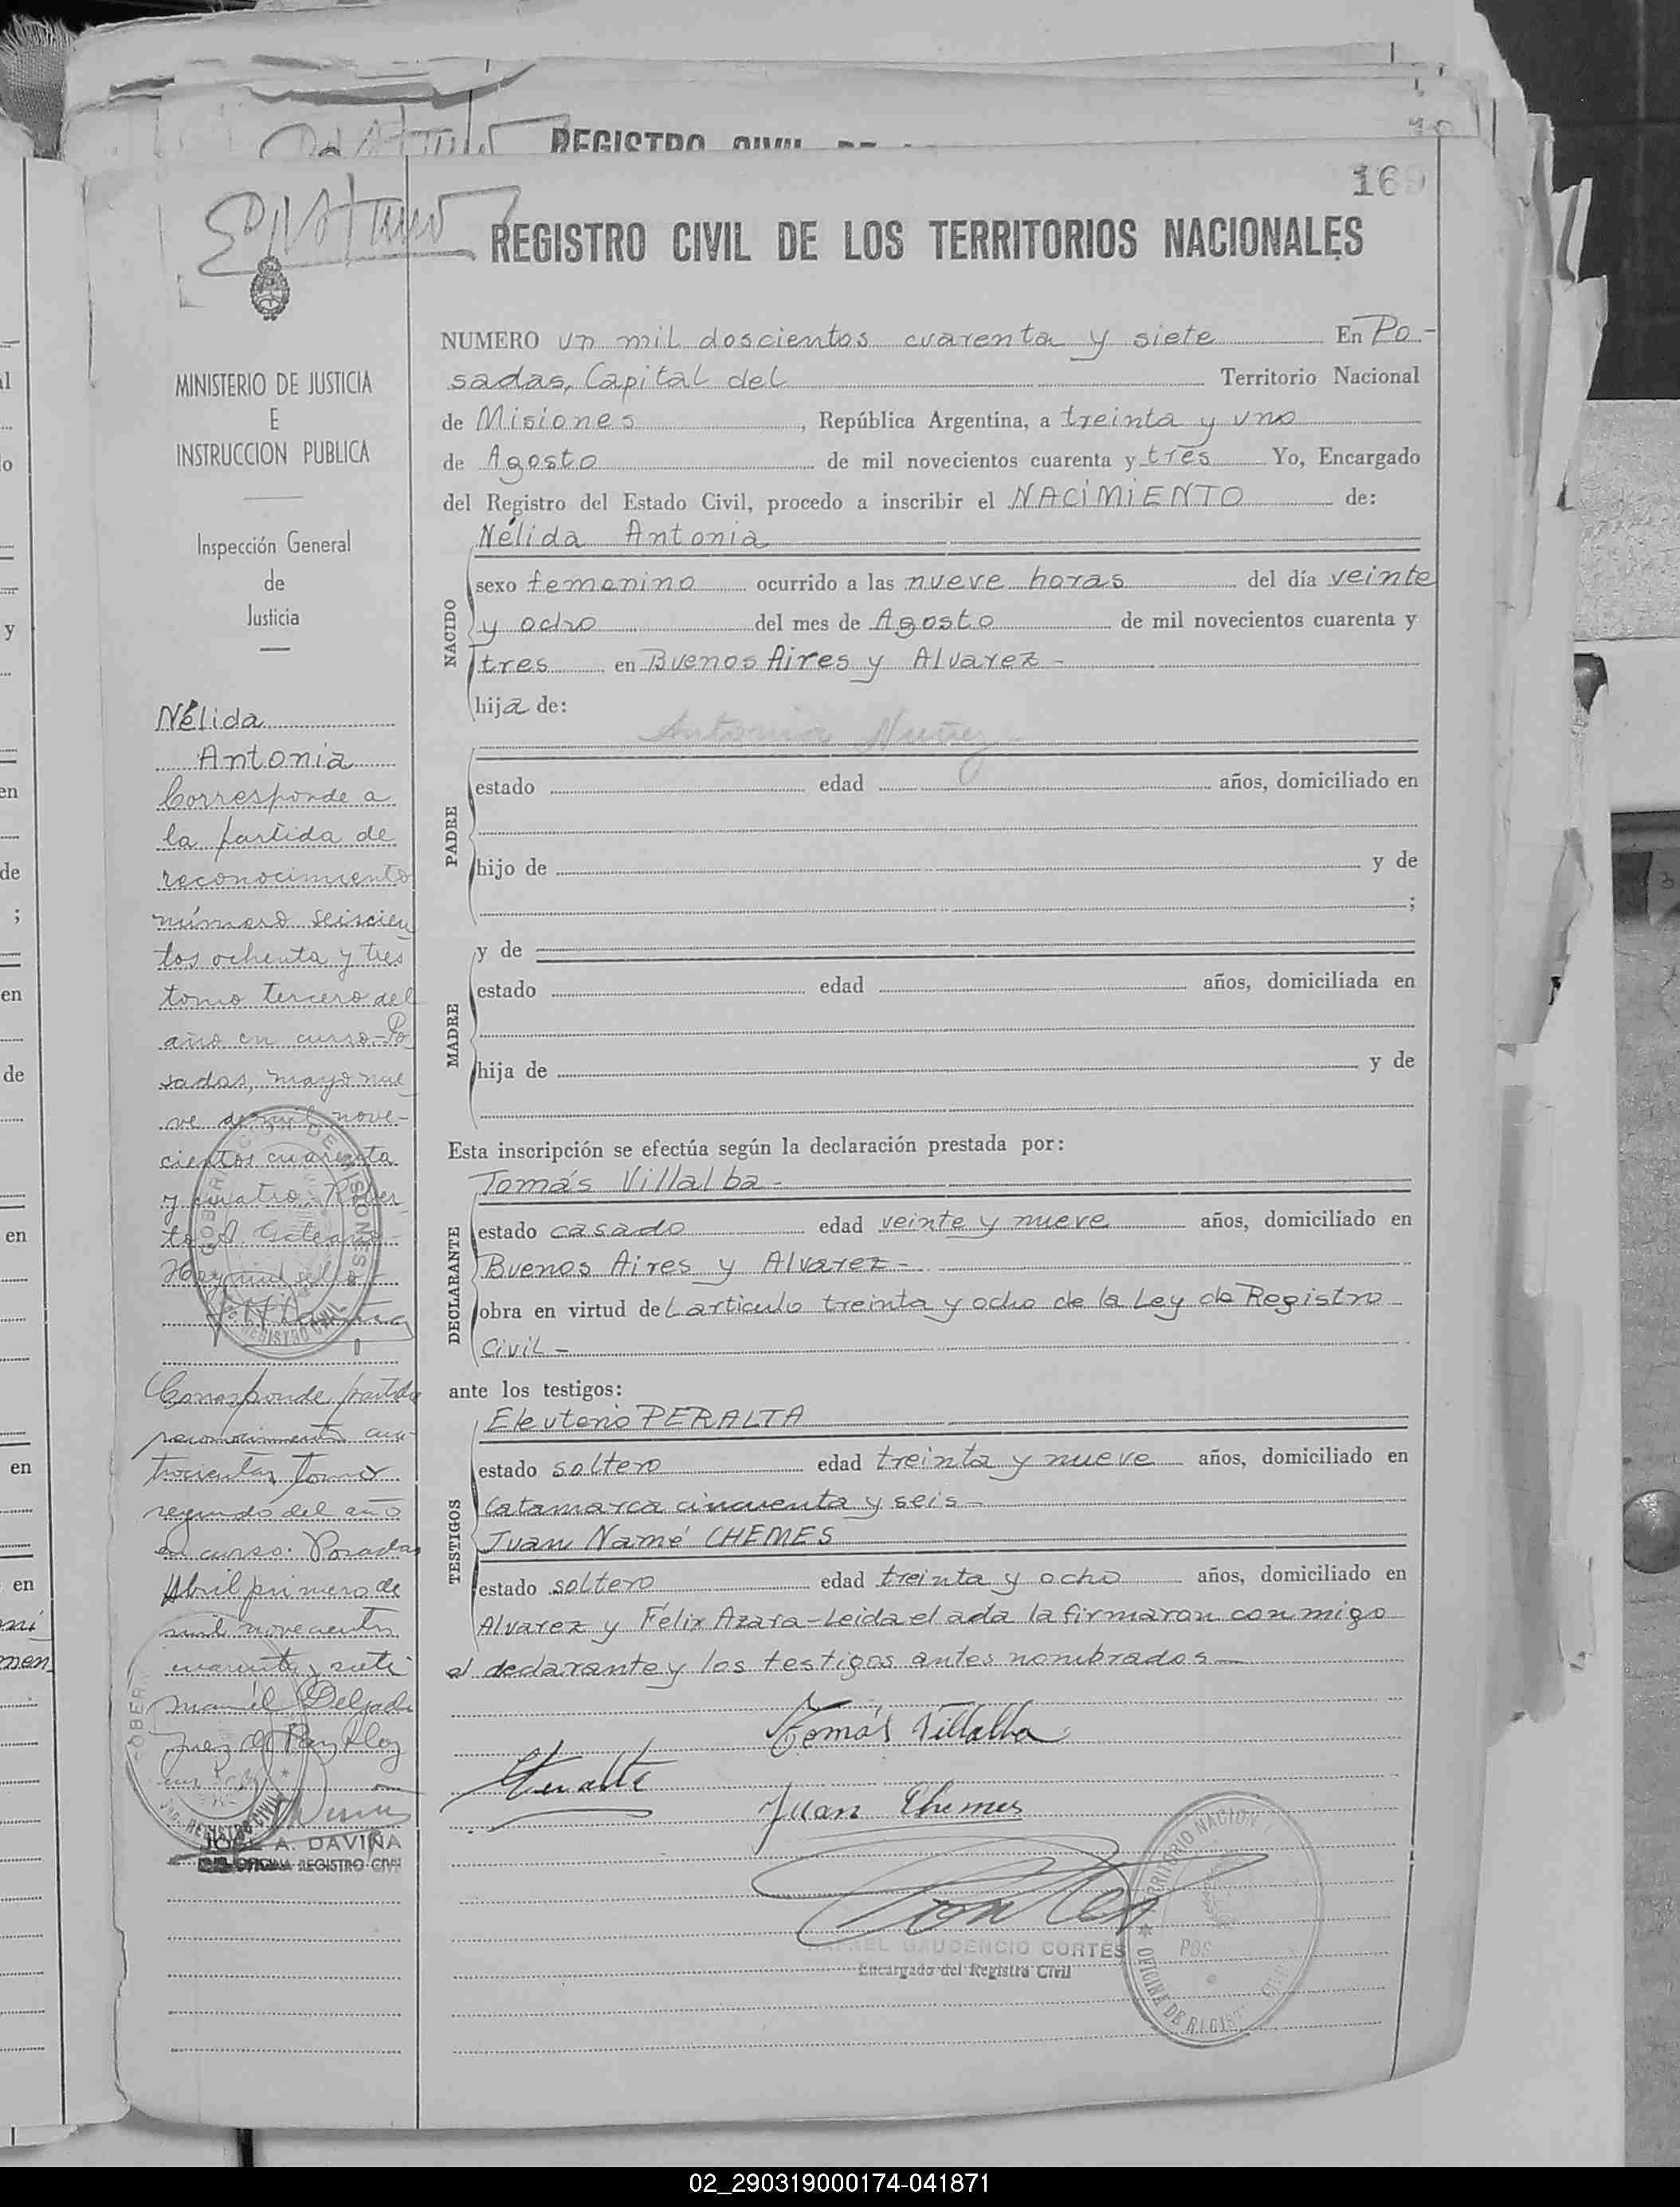 REGISTRO CIVIL DE
169
REGISTRO CIVIL DE LOS TERRITORIOS NACIONALES
MINISTERIO DE JUSTICIA
E
INSTRUCCION PUBLICA
Inspección General
de
Justicia
Nélida
Antonia
Corresponde a
la partida de
reconocimiento
número seiscien
tos ochenta y tres
tomo tercero del
año en curso-Po
sadas, mayo nue
ve de mil nove-
cientos cuarenta
y cuatro. Rober
to A. Galeano
Hay un sello
Corresponde partida
reconocimiento cua-
trocientos, tomo
segundo del año
en curso. Posadas
Abril primero de
mil novecientos
cuarenta y siete
Manuel Delgado
Juez de Paz Hay
un sello
JOSE A. DAVIÑA
OFICINA REGISTRO CIVIL
NUMERO un mil doscientos cuarenta y siete En Po-
sadas, Capital del Territorio Nacional
de Misiones, República Argentina, a treinta y uno
de Agosto de mil novecientos cuarenta y tres Yo, Encargado
del Registro del Estado Civil, procedo a inscribir el NACIMIENTO de:
Nélida Antonia
NACIDO
sexo femenino ocurrido a las nueve horas del día veinte
y ocho del mes de Agosto de mil novecientos cuarenta y
tres en Buenos Aires y Alvarez-
hija de:
Antonia Nuñez
PADRE
estado edad años, domiciliado en
hijo de y de
;
y de
MADRE
estado edad años, domiciliada en
hija de y de
Esta inscripción se efectúa según la declaración prestada por:
Tomás Villalba-
DECLARANTE
estado casado edad veinte y nueve años, domiciliado en
Buenos Aires y Alvarez-
obra en virtud del articulo treinta y ocho de la Ley de Registro
Civil-
ante los testigos:
Eleuterio PERALTA
TESTIGOS
estado soltero edad treinta y nueve años, domiciliado en
Catamarca cincuenta y seis-
Juan Namé CHEMES
estado soltero edad treinta y ocho años, domiciliado en
Alvarez y Félix Azara-Leida el acta la firmaron conmigo
el declarante y los testigos antes nombrados-
Tomás Villalba
Juan Chemes
GAUDENCIO CORTÉS
Encargado del Registro Civil
02_290319000174-041871